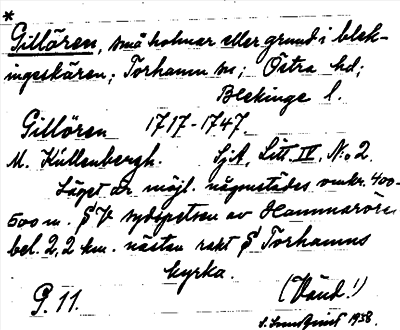 *
Gillören, små holmar eller grund i blek-
ingeskären; Torhamn sn; Östra hd;
Blekinge l.
Gillören 1717-1747.
M. Kullenbergh. SjA, Litt. IV, N:o 2.
Läget är möjl. någonstädes omkr. 400-
500 m. SV sydspetsen av Hammarören
bel. 2,2 km. nästan rakt S Torhamns
kyrka.
P. 11. (Vänd!)
S. 1938.